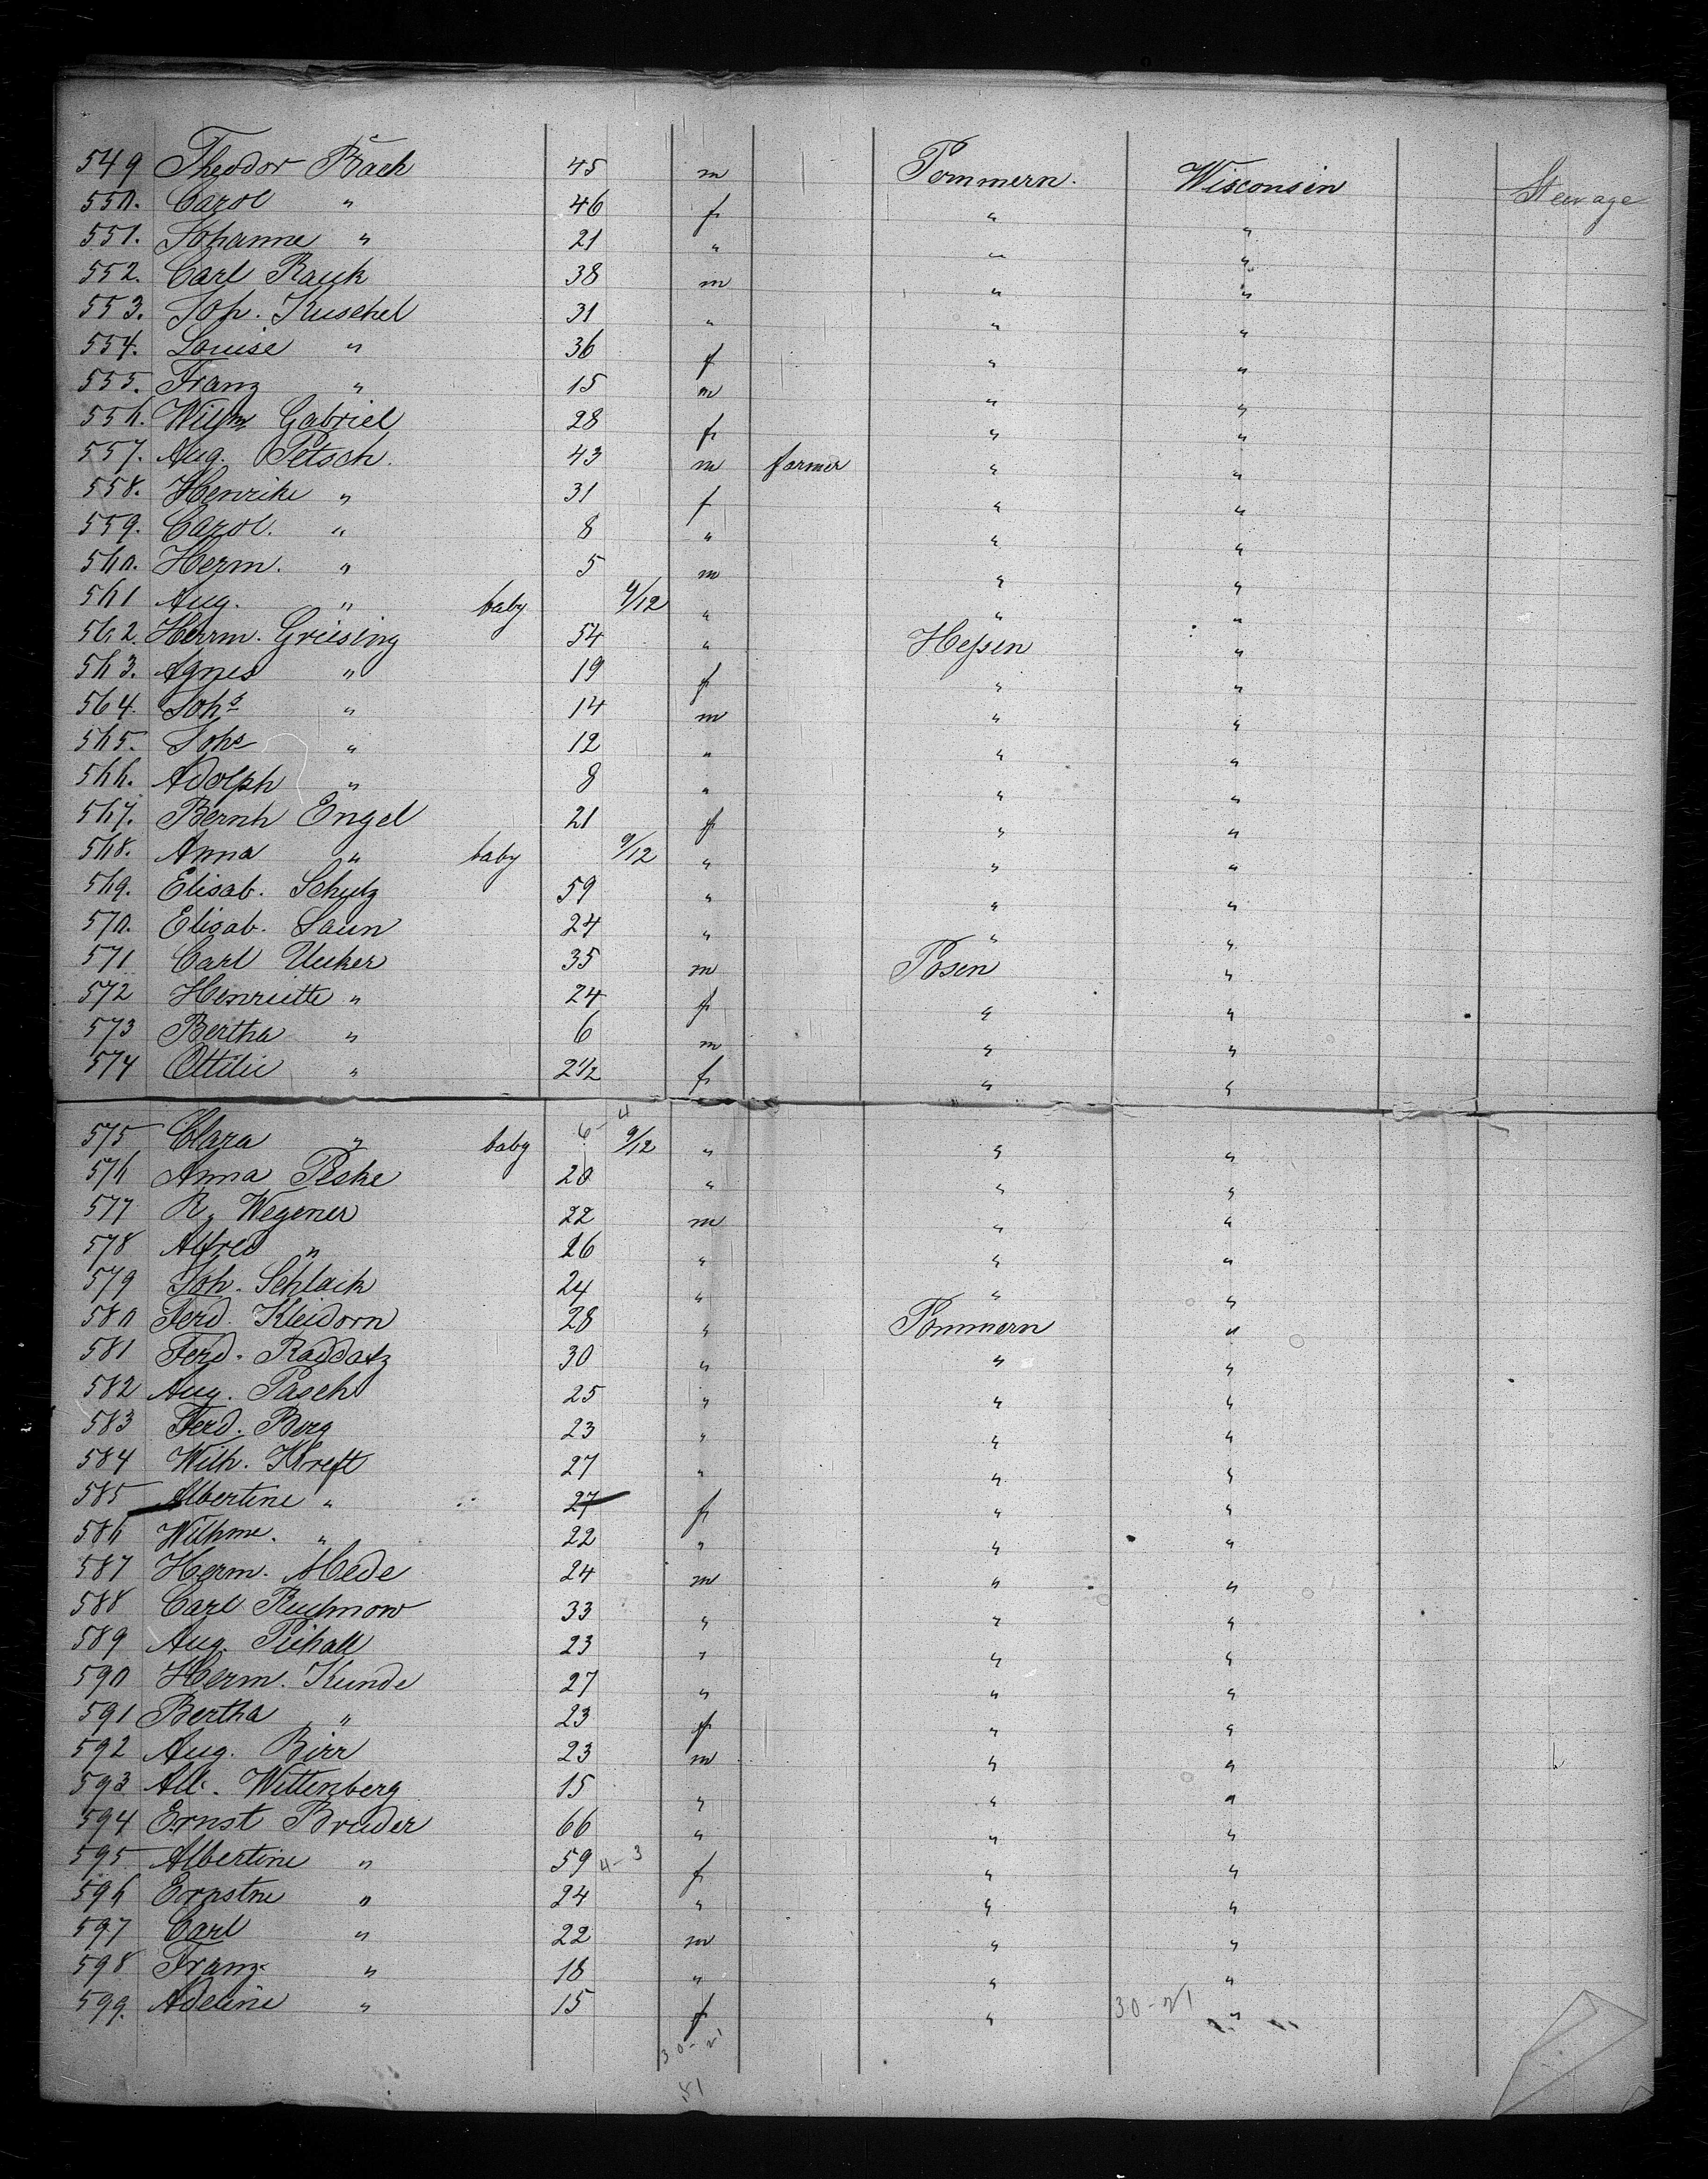 549 Theodor Bach 45 m Pommern. Wisconsin Steerage
550. Carol " 46 f " "
551. Johanne " 21 " " "
552. Carl Rauh 38 m " "
553. Joh. Kuschel 31 " " "
554. Louise " 36 f " "
555. Franz " 15 m " "
556. Wilhm Gabriel 28 f " "
557. Aug. Petsch. 43 m farmer " "
558. Henrike " 31 f " "
559. Carol. " 8 " " "
560. Herm. " 5 m " "
561 Aug. " baby /12 " " "
562. Herrm. Griesing 54 " Hessen "
563. Agnes " 19 f " "
564. Johs " 14 m " "
565. Johs " 12 " " "
566. Adolph " 8 " " "
567. Bernh Engel 21 f " "
568. Anna " baby 9/12 " " "
569. Elisab. Schulz 59 " " "
570. Elisab. Laun 24 " " "
571 Carl Ucker 35 m Posen "
572 Henriette " 24 f " "
573 Bertha " 6 m " "
574 Ottilie " 2 1/2 f " "
575 Clara " baby 9/12 " " "
576 Anna Peske 20 " " "
577 R. Wegener 22 m " "
578 Alfred " 26 " " "
579 Joh. Schlack 24 " " "
580 Ferd. Kleidorn 28 " Pommern "
581 Ferd. Raddatz 30 " " "
582 Aug. Pasch 25 " " "
583 Ferd. Berg 23 " " "
584 Wilh. Kreft 27 " " "
585 Albertine " 27 f " "
586 Wilhme. " 22 " " "
587 Herm. 24 m " "
588 Carl 33 " " "
589 Aug. 23 " " "
590 Herm. Kunde 27 " " "
591 Bertha " 23 f " "
592 Aug. Birr 23 m " "
593 Alb. Wittenberg 15 " " "
594 Ernst Bruder 66 " " "
595 Albertine " 59 4-3 f " "
596 Ernstne " 24 " " "
597 Carl " 22 m " "
598 Franz " 18 " " "
599. Adeline " 15 f " 30-21 "
30-21
51